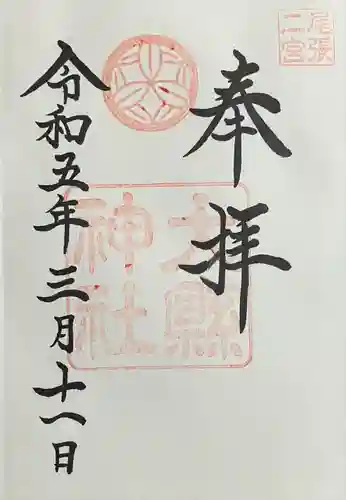 尾張
二宮
奉拝
大縣
神社
令和五年三月十一日